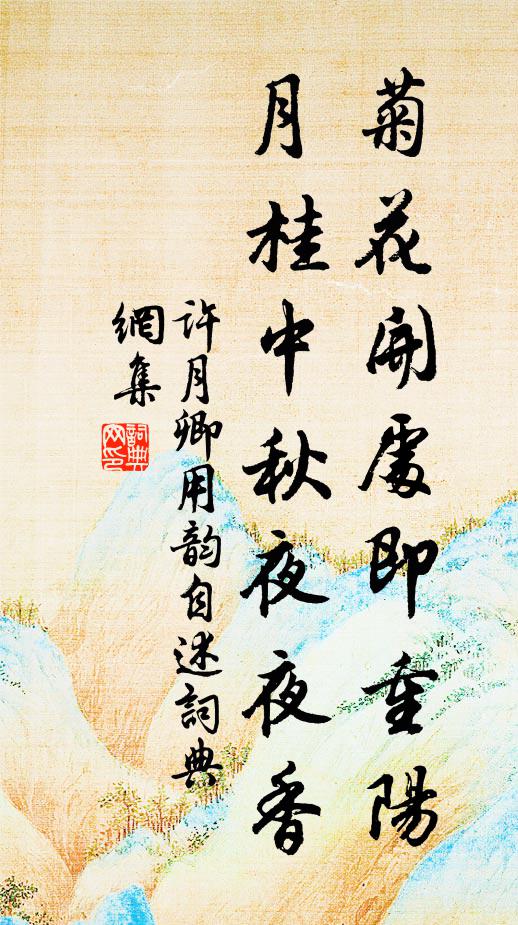 菊花開處即重陽
月桂中秋夜夜香
許月卿用韵自述詞典
網集
詞典网印